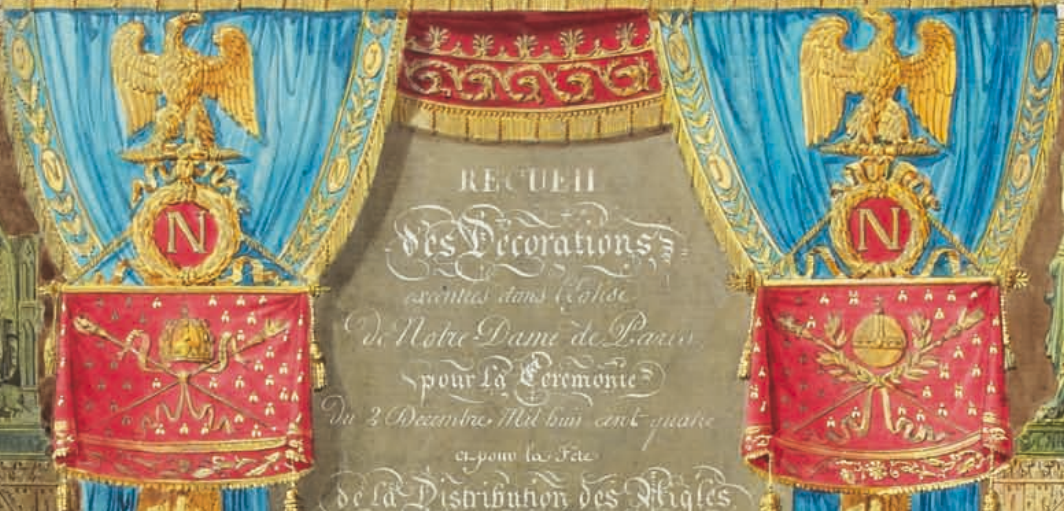 N
N
RECUEIL
des Décorations
exécutées dans l'Eglise
de Notre Dame de Paris,
pour La Cérémonie
Du 2 Décembre Mil huit cent quatre
et pour la Fête
de la Distribution des Aigles